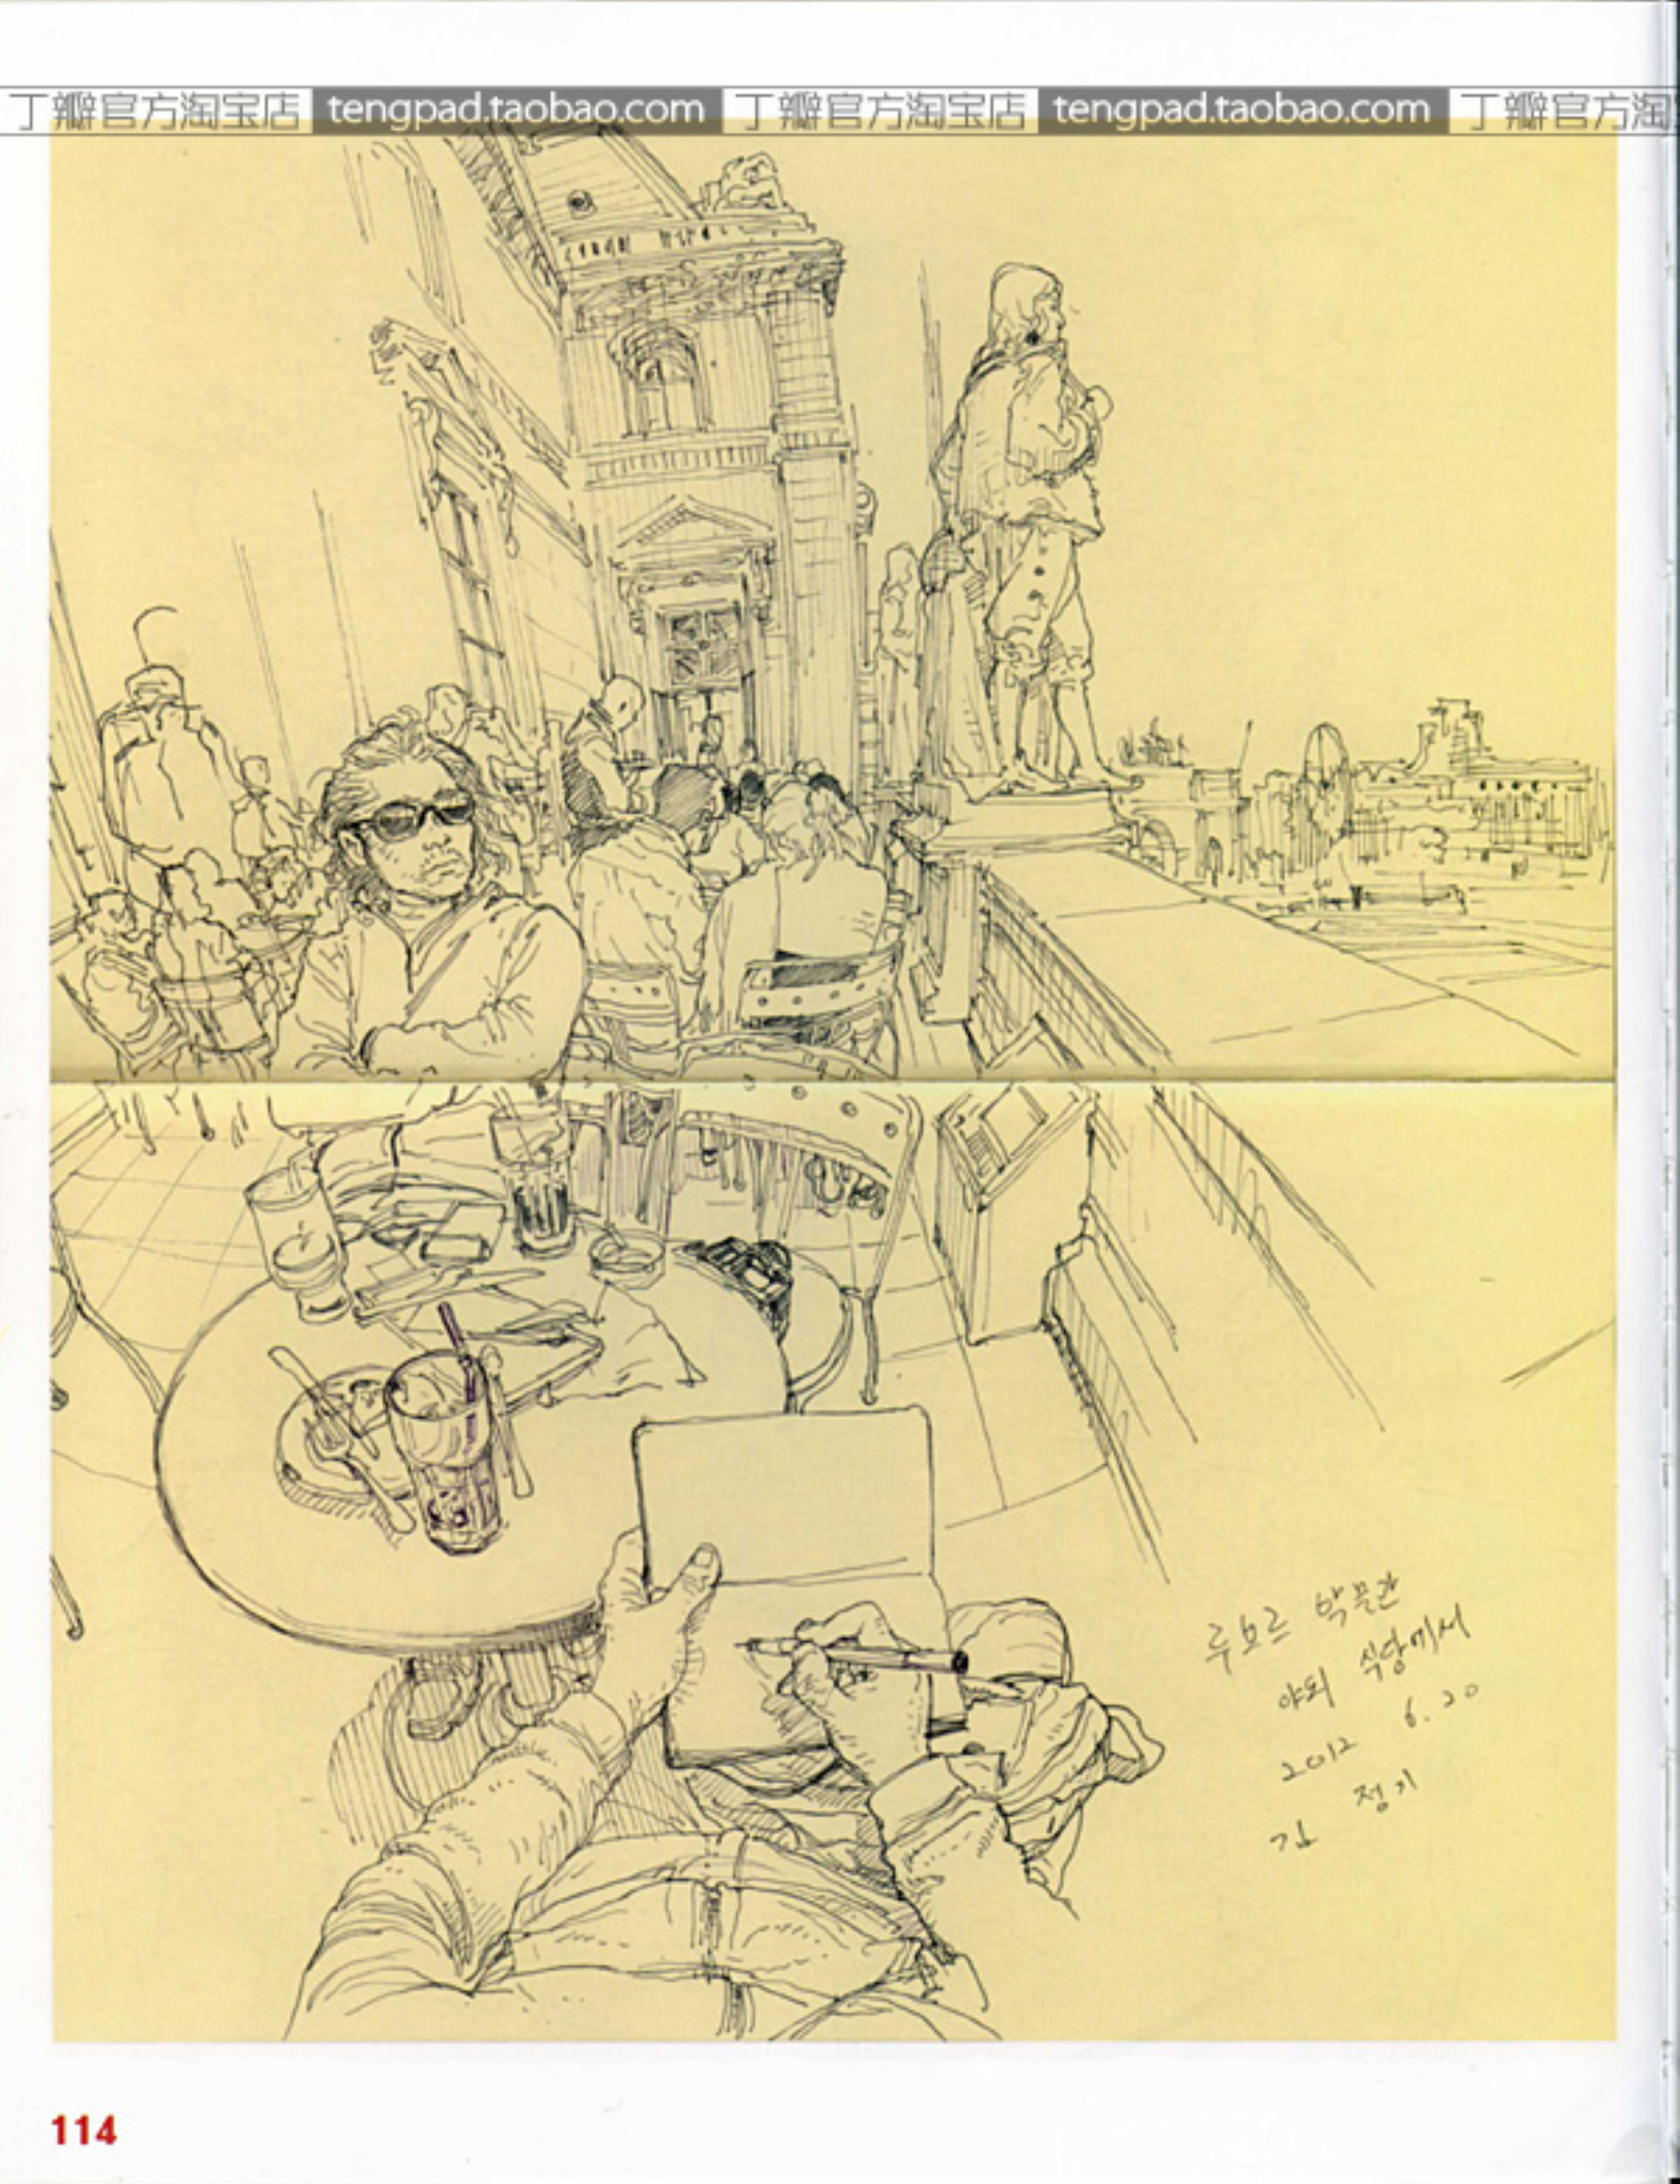 丁瓣官方淘宝店 tengpad.taobao.com 丁瓣官方淘宝店 tengpad.taobao.com 丁瓣官方淘
루브르 박물관
야외 식당에서
2012 6.20
김 정기
114